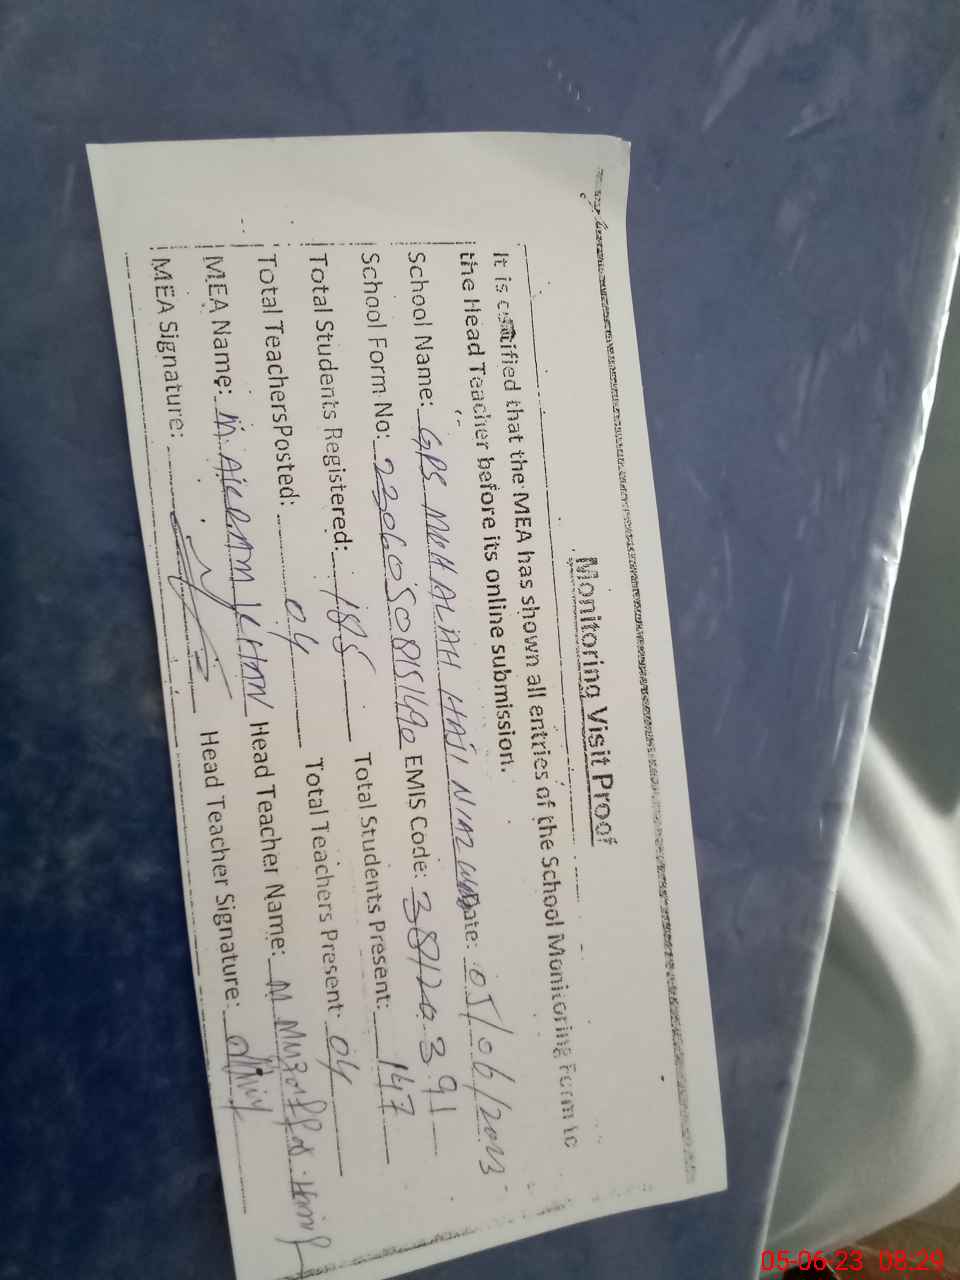 Monitoring Visit Proof
It is certified that the MEA has shown all entries of the School Monitoring Form to
the Head Teacher before its online submission.
School Name: GPS MEHALAH HAJI NIAZ Date: 05/06/2023
School Form No: EMIS Code: 38120391
Total Students Registered: 185 Total Students Present: 147
Total Teachers Posted: 04 Total Teachers Present: 04
MEA Name: M. AKRAM KHAN Head Teacher Name: M
MEA Signature: Head Teacher Signature:
05-06-23 08:29